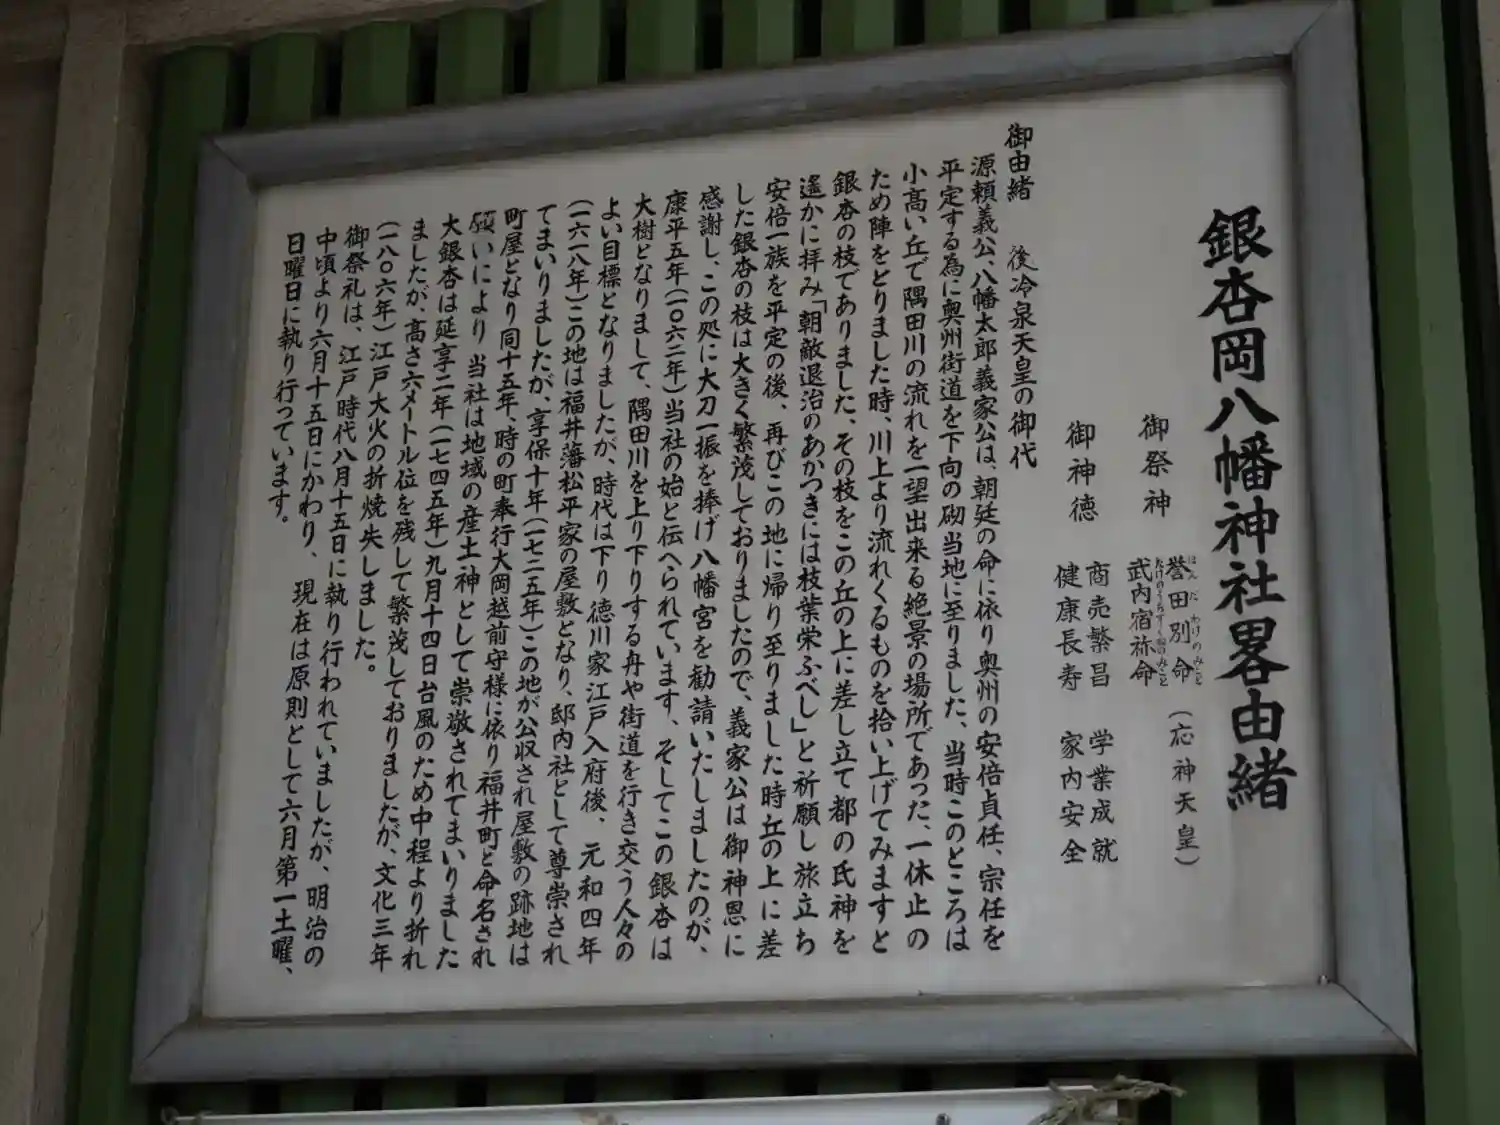 銀杏岡八幡神社畧由緒
御祭神 誉田別命(応神天皇)
武内宿祢命
御神徳 商売繁昌 学業成就
健康長寿 家内安全
御由緒 後冷泉天皇の御代
源頼義公、八幡太郎義家公は、朝廷の命に依り奥州の安倍貞任、宗任を
平定する為に奥州街道を下向の砌当地に至りました、当時このところは
小高い丘で隅田川の流れを一望出来る絶景の場所であった、一休止の
ため陣をとりました時、川上より流れくるものを拾い上げてみますと
銀杏の枝でありました、その枝をこの丘の上に差し立て都の氏神を
遙かに拝み「朝敵退治のあかつきには枝葉栄ふべし」と祈願し旅立ち
安倍一族を平定の後、再びこの地に帰り至りました時丘の上に差
した銀杏の枝は大きく繁茂しておりましたので、義家公は御神恩に
感謝し、この処に大刀一振を捧げ八幡宮を勧請いたしましたのが、
康平五年(一〇六二年)当社の始と伝へられています、そしてこの銀杏は
大樹となりまして、隅田川を上り下りする舟や街道を行き交う人々の
よい目標となりましたが、時代は下り徳川家江戸入府後、元和四年
(一六一八年)この地は福井藩松平家の屋敷となり、邸内社として尊崇され
てまいりましたが、享保十年(一七二五年)この地が公収され屋敷の跡地は
町屋となり同十五年、時の町奉行大岡越前守様に依り福井町と命名され
願いにより 当社は地域の産土神として崇敬されてまいりました
大銀杏は延享二年(一七四五年)九月十四日台風のため中程より折れ
ましたが、高さ六メートル位を残して繁茂しておりましたが、文化三年
(一八〇六年)江戸大火の折焼失しました。
御祭礼は、江戸時代八月十五日に執り行われていましたが、明治の
中頃より六月十五日にかわり、現在は原則として六月第一土曜、
日曜日に執り行っています。